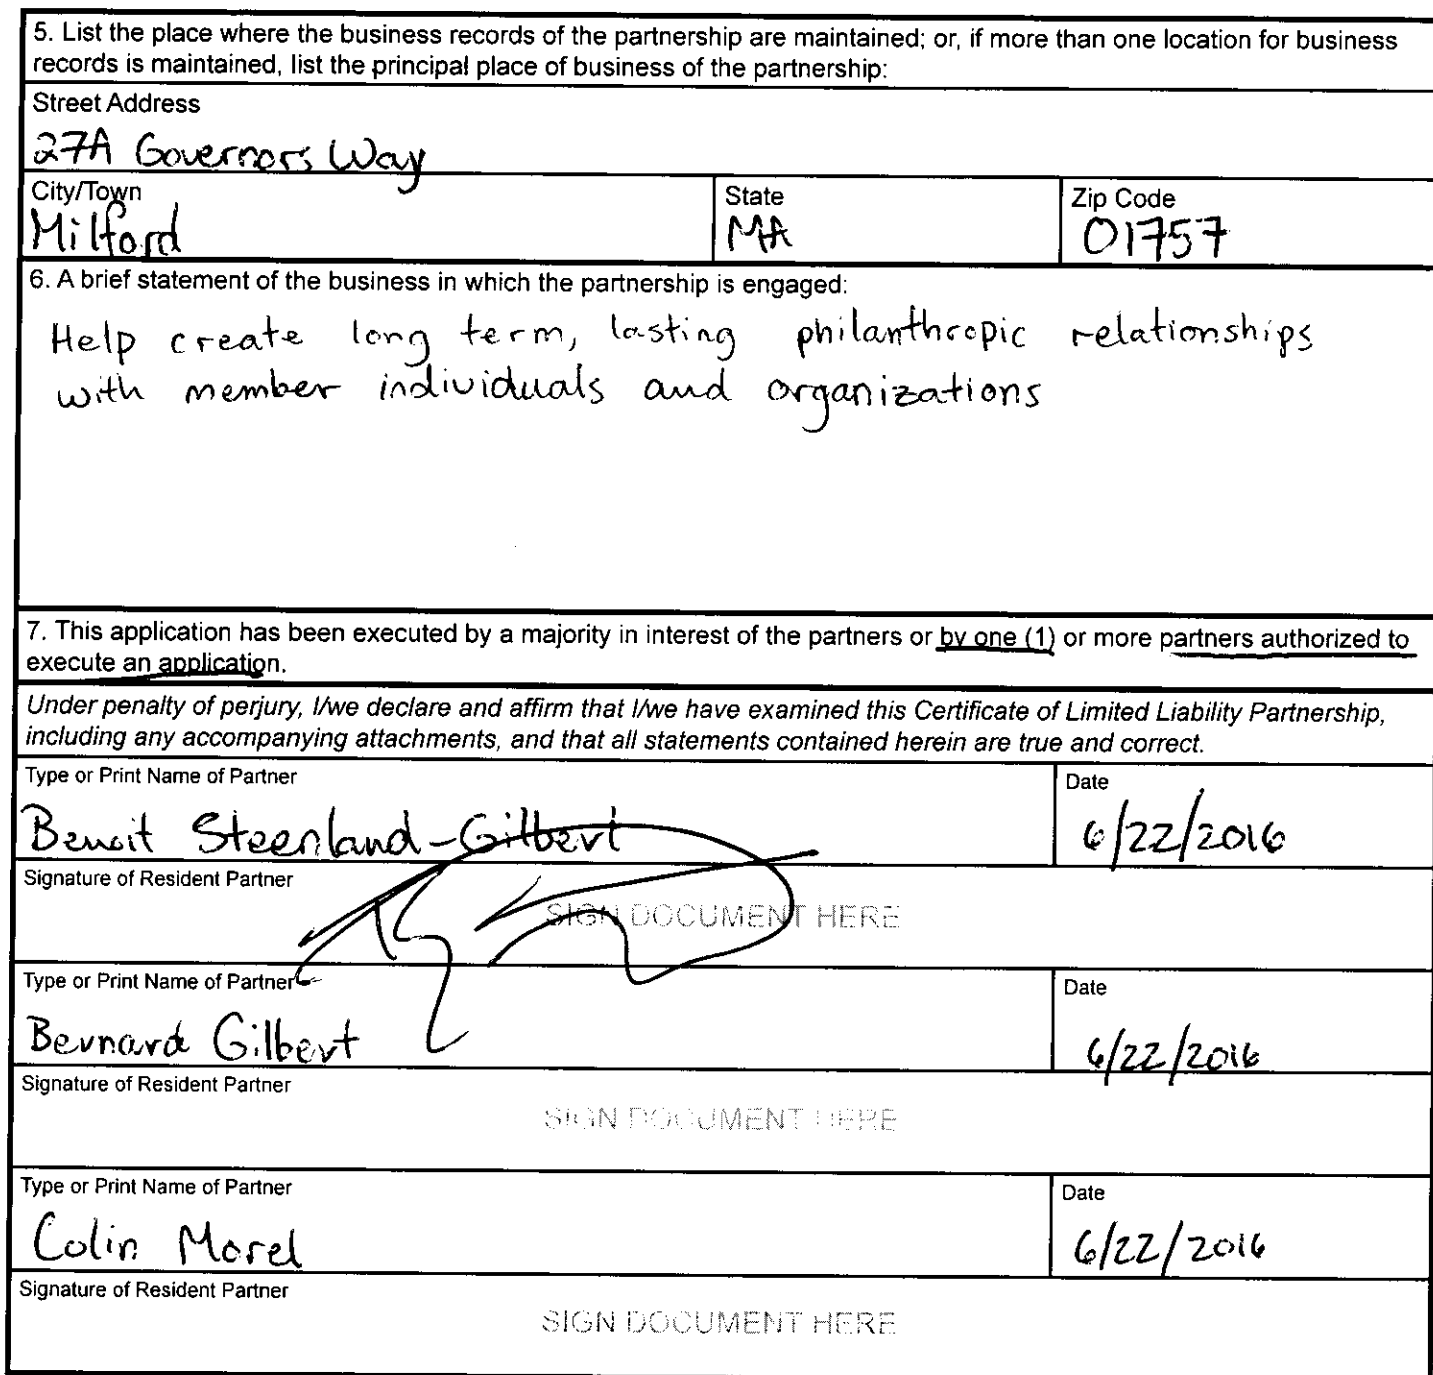 5. List the place where the business records of the partnership are maintained; or, if more than one location for business
records is maintained, list the principal place of business of the partnership:
Street Address
27A Governors Way
City/Town
Milford
State
MA
Zip Code
01757
6. A brief statement of the business in which the partnership is engaged:
Help create long term, lasting philanthropic relationships
with member individuals and organizations
7. This application has been executed by a majority in interest of the partners or by one (1) or more partners authorized to
execute an application.
Under penalty of perjury, I/we declare and affirm that I/we have examined this Certificate of Limited Liability Partnership,
including any accompanying attachments, and that all statements contained herein are true and correct.
Type or Print Name of Partner
Benoit Steenland-Gilbert
Date
6/22/2016
Signature of Resident Partner
SIGN DOCUMENT HERE
Type or Print Name of Partner
Bernard Gilbert
Date
6/22/2016
Signature of Resident Partner
SIGN DOCUMENT HERE
Type or Print Name of Partner
Colin Morel
Date
6/22/2016
Signature of Resident Partner
SIGN DOCUMENT HERE